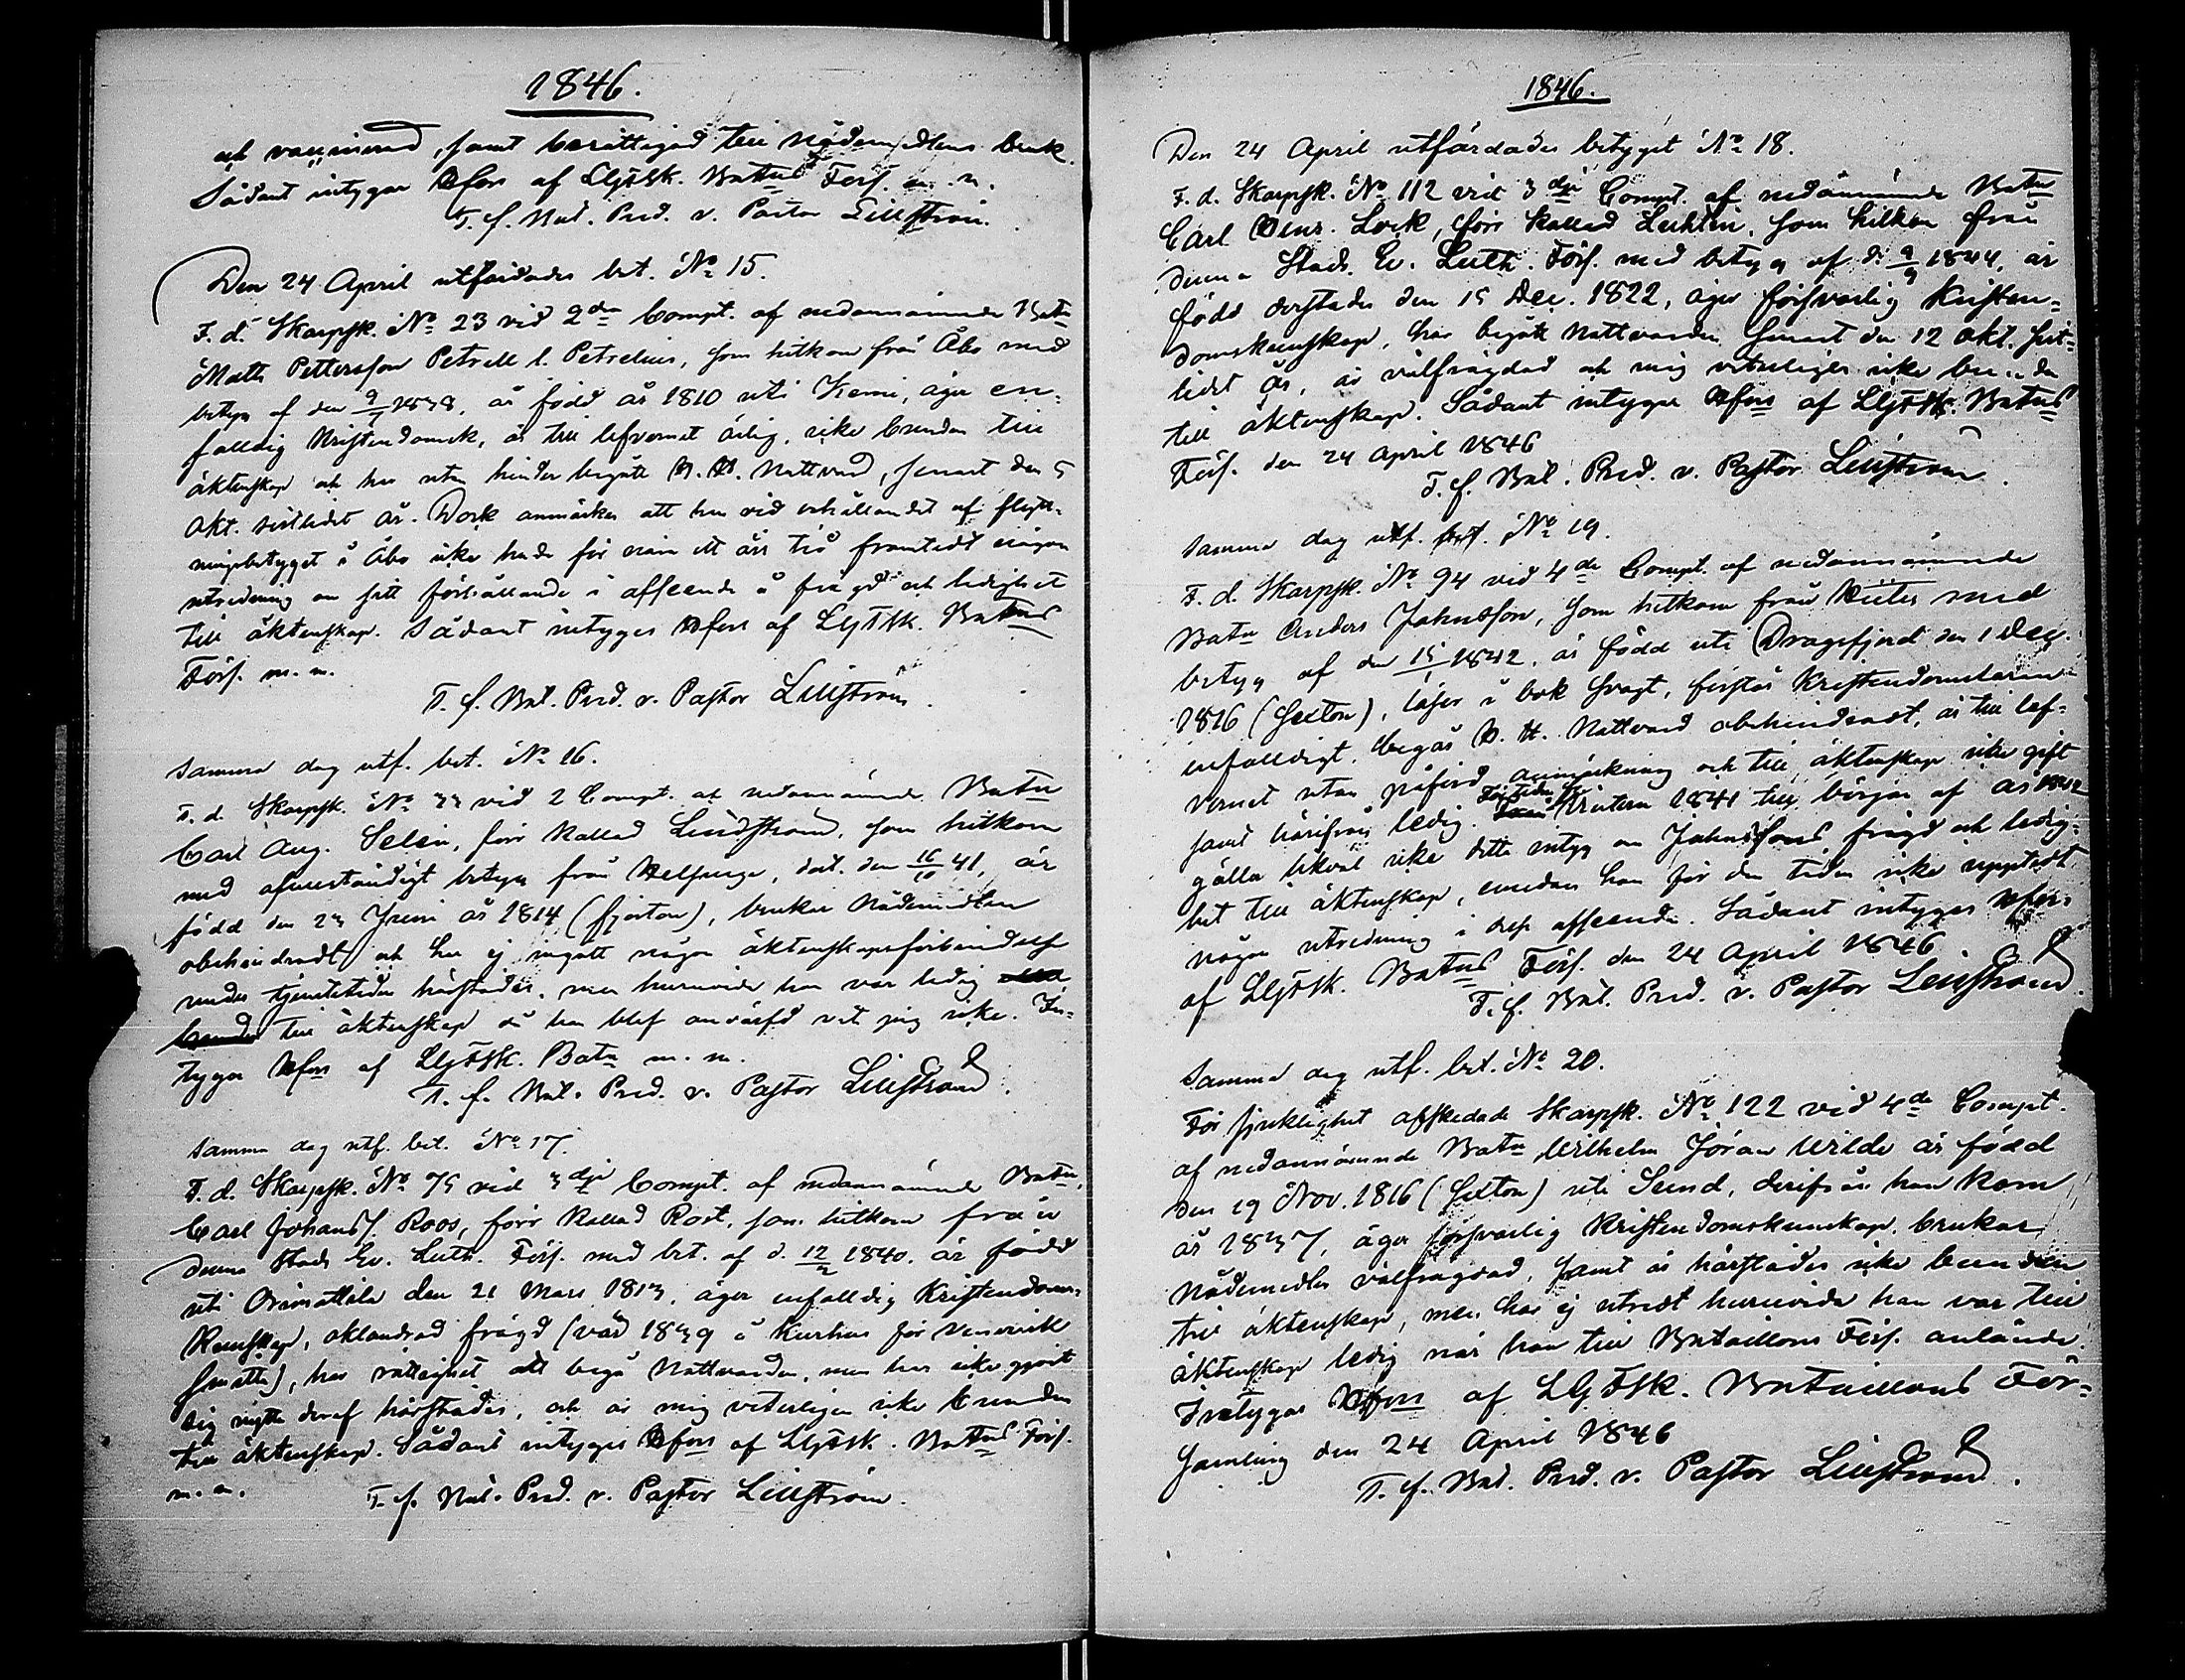 1846.
och vaccinerad, samt berättigad till nådemedlens bruk.
Sådant intygar Hfors af LGFSk. Batns Förs. m. m.
T. f. Bat. Pred. v. Pastor Lillström.
Den 24 April utfärdades bet. No 15.
F. d. Skarpsk. No 23 vid 2dra Compt. af nedannämnde Batn
Matts Pettersson Petrell l. Petrelius, som hitkom från Åbo med
betyg af den 1838, är född år 1810 uti Kemi, äger en-
faldig Kristendomsk, är till lefvernet ärlig, icke bunden till
äktenskap och har utan hinder begått H. H. Nattvard, senast den 5
Okt. sistlidet år. Dock anmärkes att han vid erhållandet af flytt-
ningsbetyget i Åbo icke hade för ett års tid framtedt någon
utredning om sitt förhållande i afseende å frägd och ledighet
till äktenskap. Sådant intygas Hfors af LGFSk. Batns
Förs. m. m.
T. f. Bat. Pred. v. Pastor Lillström.
Samma dag utf. bet. No 16.
F. d. Skarpsk. No 33 vid 2 Compt. af nedannämnde Batn
Carl Aug. Selin, förr kallad Lindström, som hitkom
med ofullständigt betyg från Helsinge, dat. den 16/10 41, är
född den 23 Juni år 1814 (fjorton), brukar Nådemedlen
obehindradt och har ej ingått någon äktenskapsförbindelse
under tjenstetiden härstädes, men huruvida han var ledig
till äktenskap då han blef anvärfd vet jag icke. In-
tygar Hfors af LGFSk. Batn m. m.
T. f. Bat. Pred. v. Pastor Lillström.
Samma dag utf. bet. No 17.
F. d. Skarpsk. No 75 vid 3dje Compt. af nedannämnde Batn,
Carl Johanss. Roos, förr kallad Rost, som hitkom från
denna Stads Ev. Luth. Förs. med bet. af d. 12/2 1840, är född
uti Orimattila den 21 Mars 1813, äger enfaldig Kristendoms-
kunskap, oklandrad frägd (var 1839 å Kurhus för venerisk
smitta), har rättighet att begå Nattvarden, men har icke gjort
sig nytta deraf härstädes, och är mig veterligen icke bunden
till äktenskap. Sådant intygas Hfors af LGFSk. Batns Förs.
m. m.
T. f. Bat. Pred. v. Pastor Lillström.
1846.
Den 24 April utfärdades betyget No 18.
F. d. Skarpsk. No 112 vid 3dje Compt. af nedannämnde Batn
Carl Henr. Lock, förr kallad Lecklin, som hitkom från
denna Stads Ev. Luth. Förs. med betyg af d. 9/9 1844, är
född derstädes den 15 Dec. 1822, äger försvarlig Kristen-
domskunskap, har begått Nattvarden senast den 12 Okt. sist-
lidet år, är välfrägdad och mig veterligen icke bunden
till äktenskap. Sådant intygar Hfors af LGFSk. Batns
Förs. den 24 April 1846
T. f. Bat. Pred. v. Pastor Lillström.
Samma dag utf. bet. No 19.
F. d. Skarpsk. No 94 vid 4de Compt. af nedannämnde
Batn Anders Johansson, som hitkom från Hiitis med
betyg af den 1842, är född uti Dragsfjerd den 1 Dec.
1816 (sexton), läser i bok svagt, förstår Kristendomslären
enfaldigt, begår H. H. Nattvard obehindradt, är till lef-
vernet utan påförd anmärkning och till äktenskap icke gift
samt härifrån ledig. För tiden från Vintern 1841 till början af år 1842
gäller likväl icke detta intyg om Johanssons frägd och ledig-
het till äktenskap, emedan han för den tiden icke upptedt
någon utredning i dess afseende. Sådant intygas Hfors
af LGFSk. Batns Förs. den 24 April 1846.
T. f. Bat. Pred. v. Pastor Lillström.
Samma dag utf. bet. No 20.
För sjuklighet afskedade Skarpsk. No 122 vid 4de Compt.
af nedannämnde Batn Wilhelm Jöran Wilde är född
den 19 Nov. 1816 (sexton) uti Sund, derifrån han kom
år 1837, äger försvarlig Kristendomskunskap, brukar
Nådemedlen välfrägdad, samt är härstädes icke bunden
till äktenskap, men har ej utredt huruvida han var till
äktenskap ledig när han till Bataillons Förs. anlände.
Intygas Hfors af LGFSk. Bataillons För-
samling den 24 April 1846
T. f. Bat. Pred. v. Pastor Lillström.